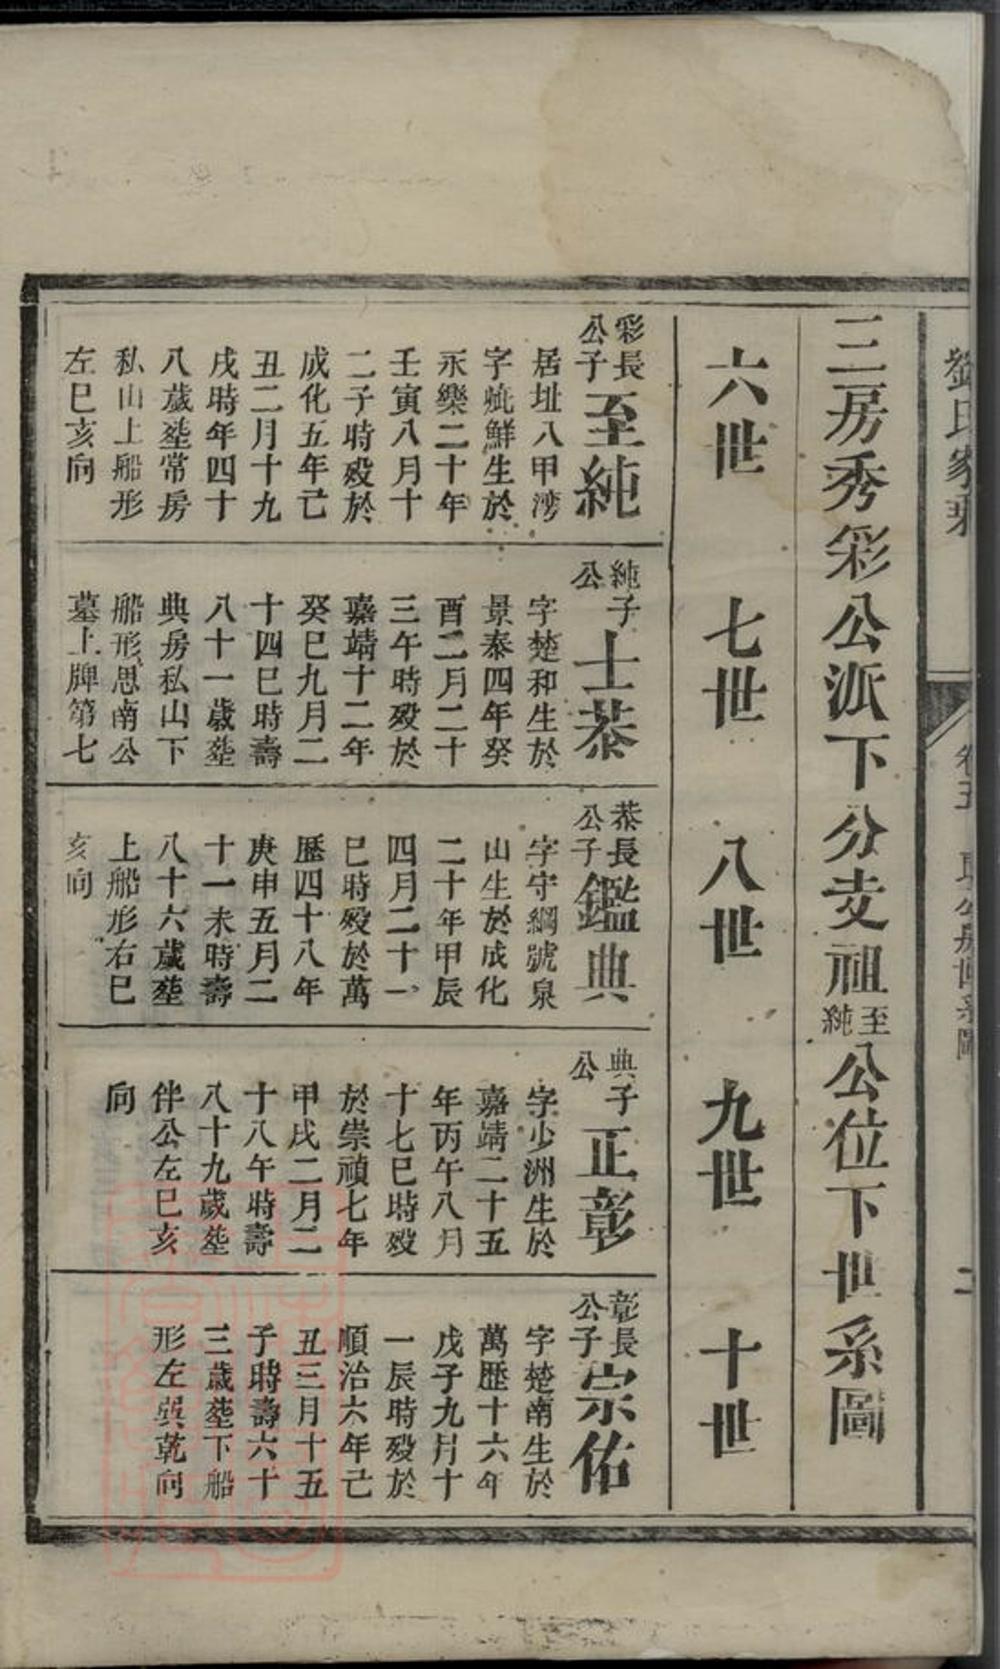 劉氏家乘
卷五
二
三房秀彩公派下分支祖至純公位下世系圖
六世 七世 八世 九世 十世
彩長公子至純
居址八甲湾
字 鮮生於
永樂二十年
壬寅八月十
二子時歿於
成化五年己
丑二月十九
戌時年四十
八歲塟常房
私山上船形
左巳亥向
純公子士恭
字楚和生於
景泰四年癸
酉二月二十
三午時歿於
嘉靖十二年
癸巳九月二
十四巳時壽
八十一歲塟
典房私山下
船形思南公
墓上牌第七
恭長公子鑑典
字守綱號泉
山生於成化
二十年甲辰
四月二十一
巳時歿於萬
歷四十八年
庚申五月二
十一未時壽
八十六歲塟
上船形右巳
亥向
典公子正彰
字少洲生於
嘉靖二十五
年丙午八月
十七巳時歿
於崇禎七年
甲戌二月二
十八午時壽
八十九歲塟
伴公左巳亥
向
彰長公子宗佑
字楚南生於
萬歷十六年
戊子九月十
一辰時歿於
順治六年己
丑三月十五
子時壽六十
三歲塟下船
形左巽乾向